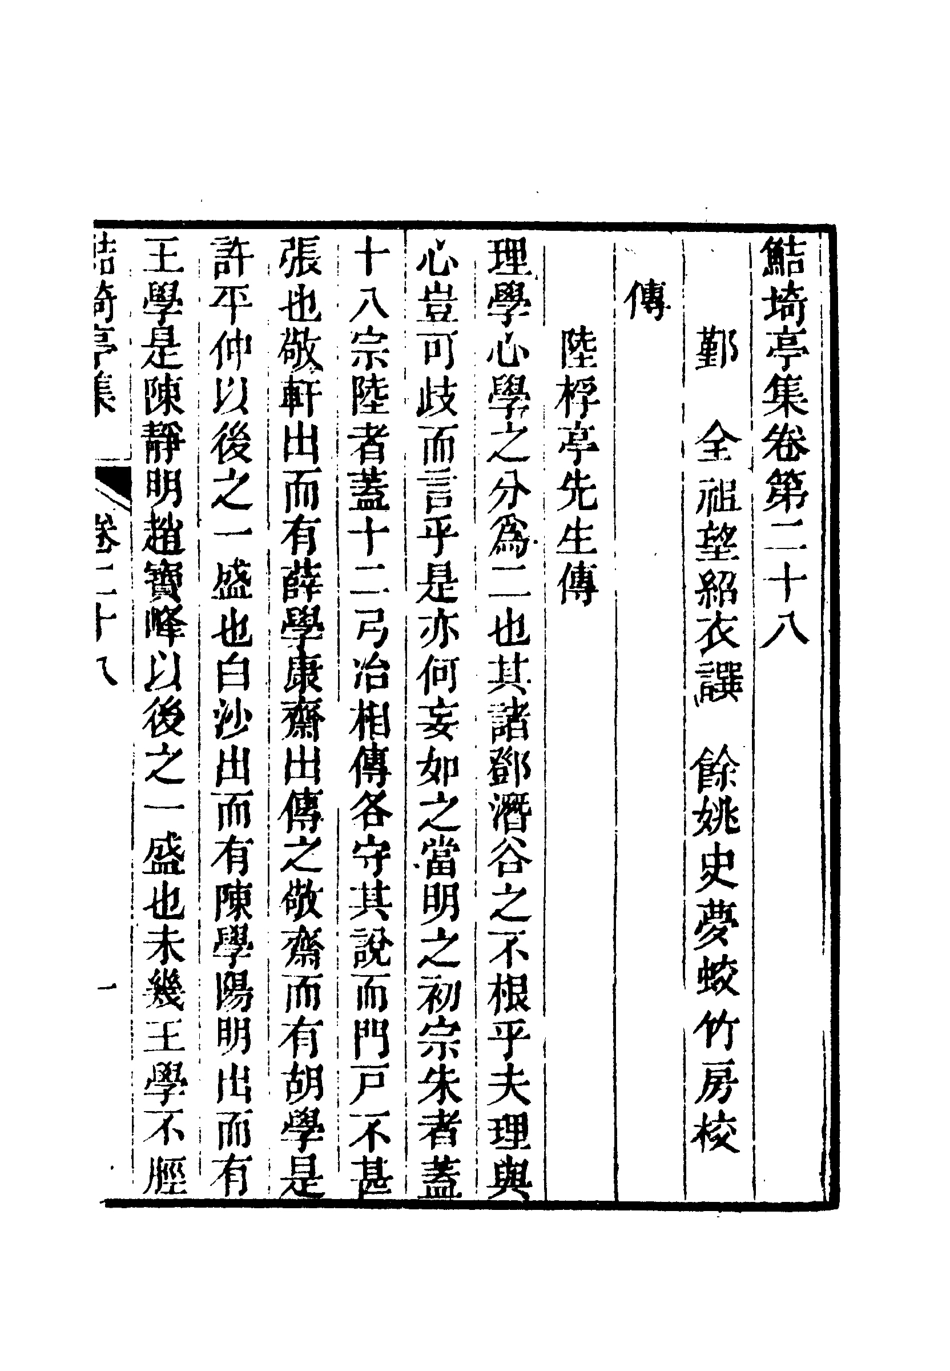 鮚埼亭集卷第二十八
鄞　全祖望紹衣譔　餘姚史夢蛟竹房校
傳
陸桴亭先生傳
理學心學之分爲二也其諸鄧潛谷之不根乎夫理與
心豈可歧而言乎是亦何妄如之當明之初宗朱者蓋
十八宗陸者蓋十二弓冶相傳各守其說而門戸不甚
張也敬軒出而有薛學康齋出傳之敬齋而有胡學是
許平仲以後之一盛也白沙出而有陳學陽明出而有
王學是陳靜明趙寶峰以後之一盛也未幾王學不脛
鮚埼亭集　卷二十八　一